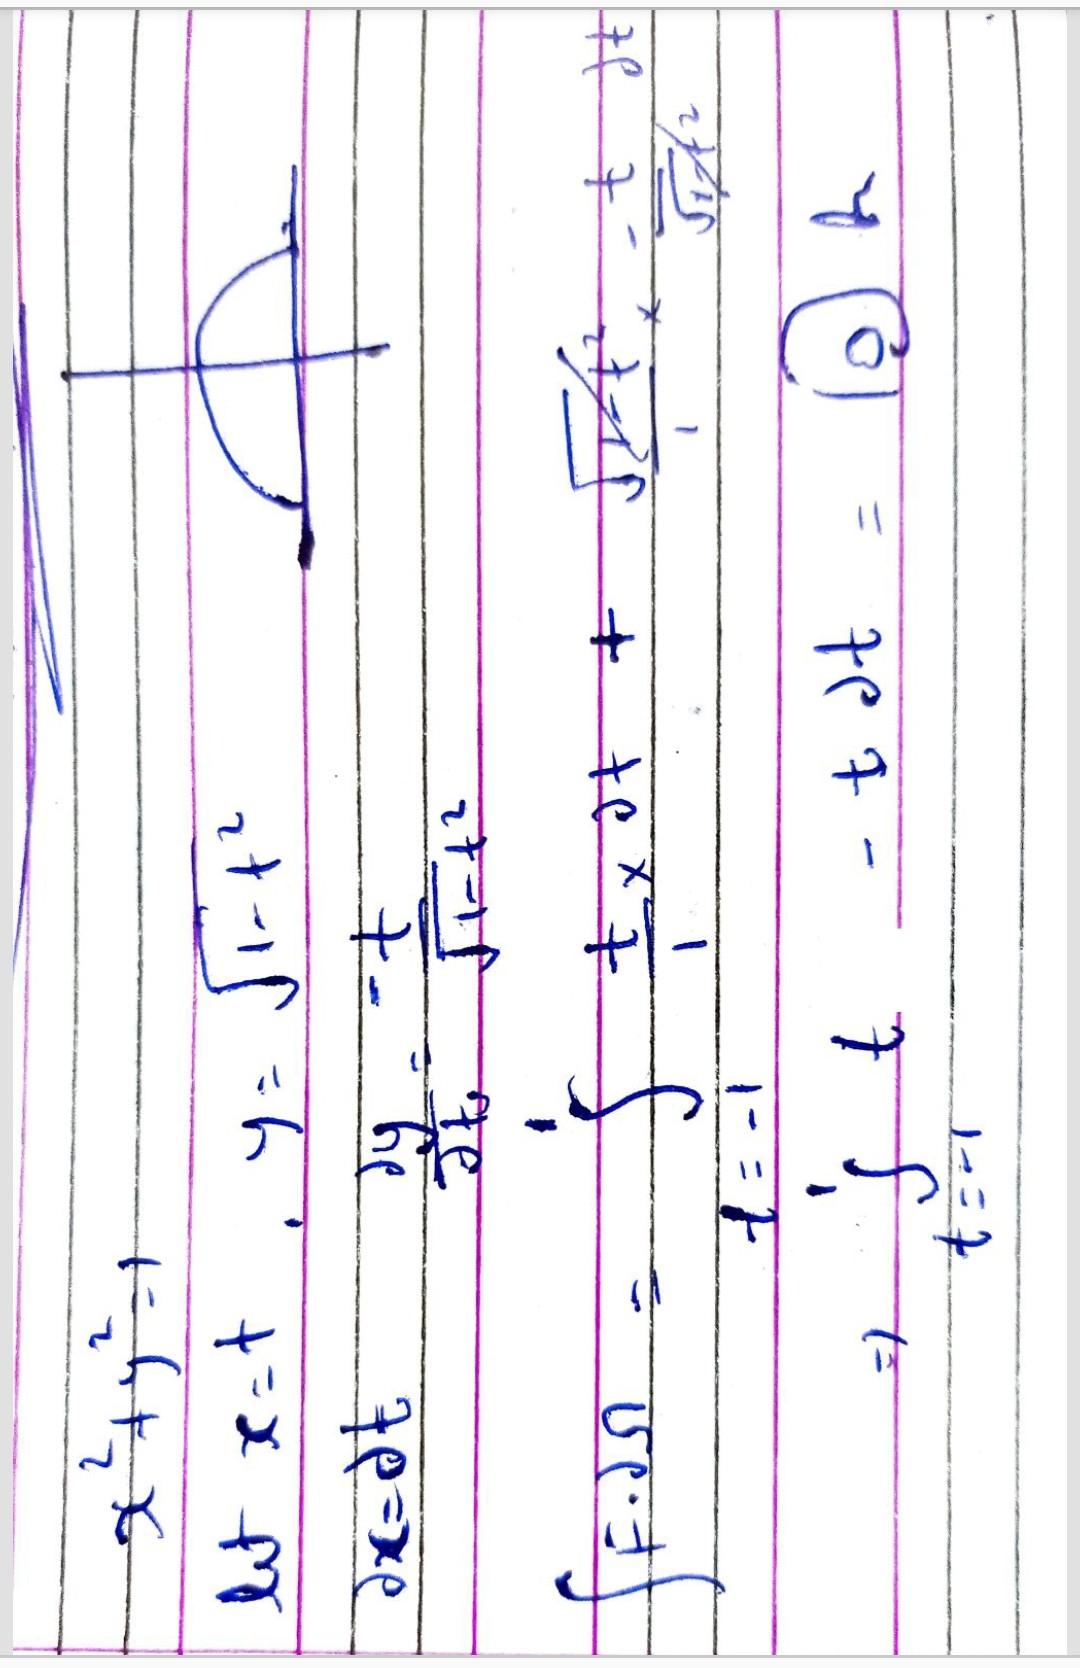 x² + y² = 1
let x = t , y = √1-t²
∂x = ∂t ∂y/∂t = -t/√1-t²
∫F.∂r = ∫₍t=-1₎¹ t/1 × ∂t + √1-t²/1 × -t/√1-t² ∂t
=) ∫₍t=-1₎¹ t - t ∂t = 0